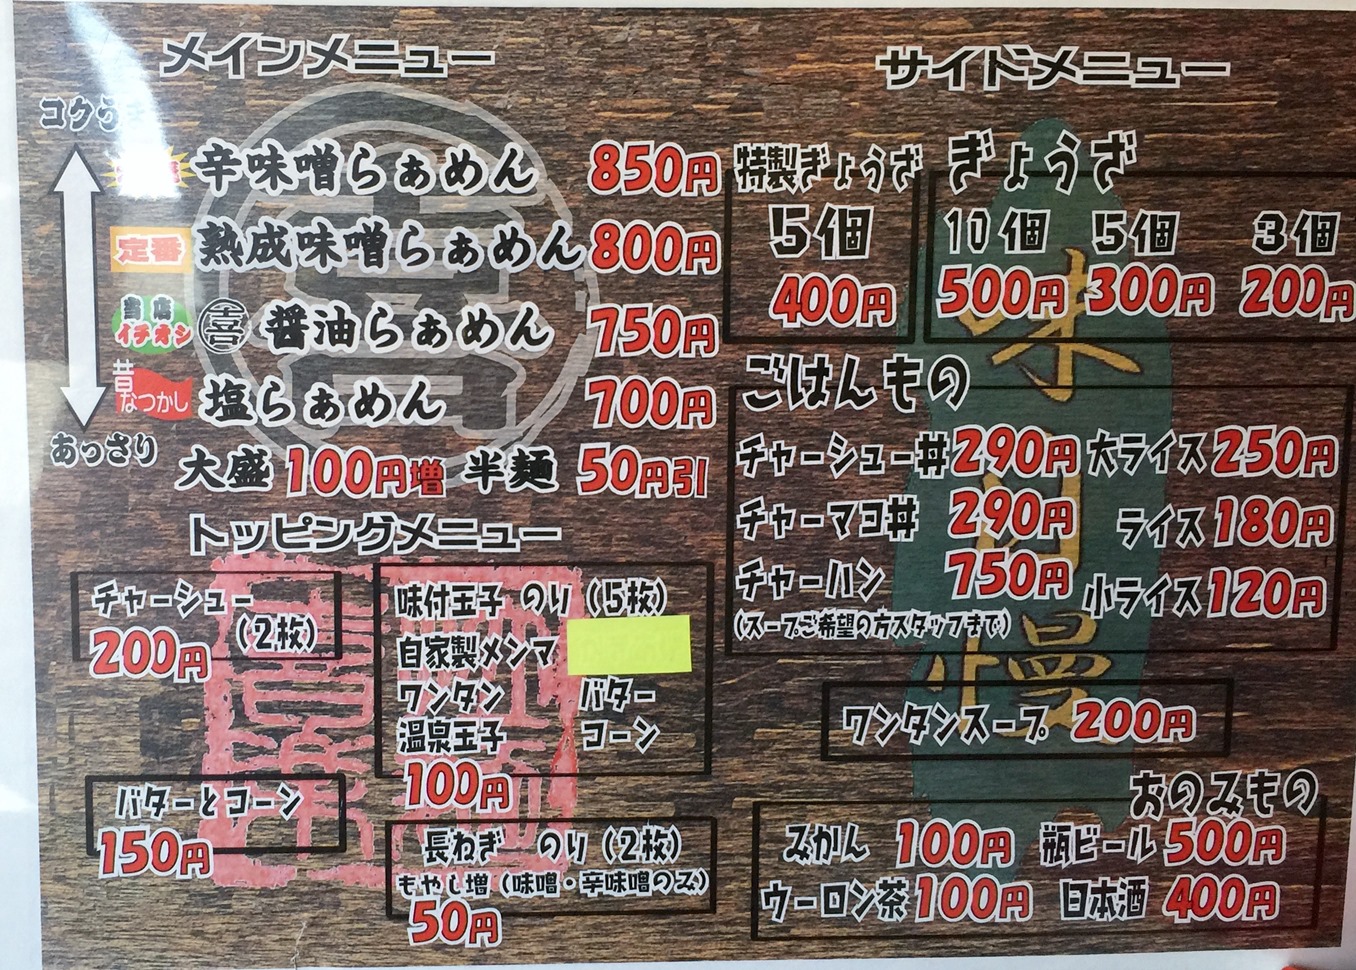 メインメニュー
コクう
辛味噌らぁめん 850円
定番 熟成味噌らぁめん 800円
当店
イチオシ 醤油らぁめん 750円
昔
なつかし 塩らぁめん 700円
あっさり
大盛 100円増 半麺 50円引
トッピングメニュー
チャーシュー
(2枚)
200円
味付玉子 のり (5枚)
自家製メンマ
ワンタン バター
温泉玉子 コーン
100円
バターとコーン
150円
長ねぎ のり (2枚)
もやし増 (味噌・辛味噌のみ)
50円
サイドメニュー
特製ぎょうざ
5個
400円
ぎょうざ
10個 5個 3個
500円 300円 200円
ごはんもの
チャーシュー丼 290円 大ライス 250円
チャーマヨ丼 290円 ライス 180円
チャーハン 750円 小ライス 120円
(スープご希望の方スタッフまで)
ワンタンスープ 200円
おのみもの
みかん 100円 瓶ビール 500円
ウーロン茶 100円 日本酒 400円
味自慢